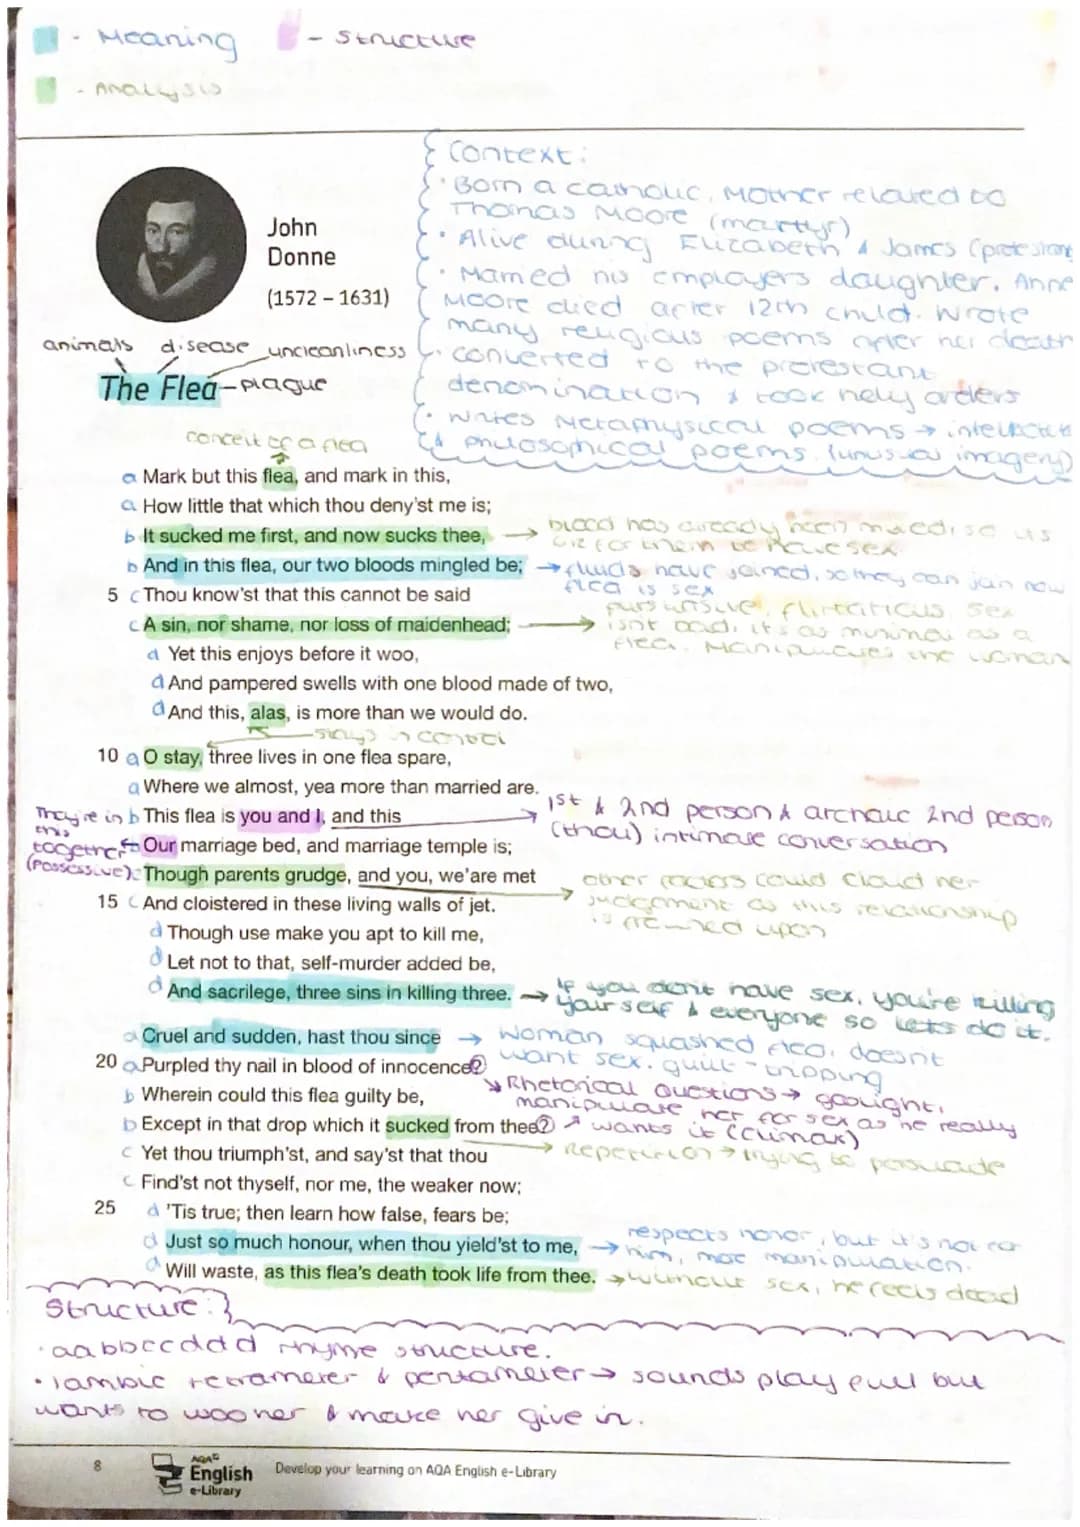 - Meaning - Structure
- Analysis
Context:
• Born a catholic, Mother related to
Thomas Moore (martyr)
• Alive during Elizabeth & James (protestant
• Married his employers daughter. Anne
Moore died after 12th child. Wrote
many religious poems after her death
• converted to the protestant
denomination & took holy orders
• Writes Metaphysical poems → intellectual
& philosophical poems. (unusual imagery)
John
Donne
(1572 – 1631)
animals disease uncleanliness
The Flea - plague
conceit of a flea
a Mark but this flea, and mark in this,
a How little that which thou deny'st me is;
b It sucked me first, and now sucks thee, → blood has already been mixed, so its
ok for them to have sex
b And in this flea, our two bloods mingled be; → fluids have joined, so they can join now
flea is sex
5 c Thou know'st that this cannot be said
c A sin, nor shame, nor loss of maidenhead; → persuasive, flirtatious, sex
isnt bad, it's as minimal as a
flea. Manipulates the woman
d Yet this enjoys before it woo,
d And pampered swells with one blood made of two,
d And this, alas, is more than we would do.
stays in control
10 a O stay, three lives in one flea spare,
a Where we almost, yea more than married are.
They're in this together (possessive)
b This flea is you and I, and this → 1st & 2nd person & archaic 2nd person
(thou) intimate conversation
b Our marriage bed, and marriage temple is;
c Though parents grudge, and you, we'are met → other factors could cloud her
judgement as this relationship
is frowned upon
15 c And cloistered in these living walls of jet.
d Though use make you apt to kill me,
d Let not to that, self-murder added be,
d And sacrilege, three sins in killing three. → If you dont have sex, you're killing
yourself & everyone so lets do it.
a Cruel and sudden, hast thou since → woman squashed flea, doesnt
want sex. guilt-tripping
20 a Purpled thy nail in blood of innocence?
↘ Rhetorical Questions → gaslight,
manipulate her for sex as he really
wants it (climax)
b Wherein could this flea guilty be,
b Except in that drop which it sucked from thee?
→ Repetition → trying to persuade
c Yet thou triumph'st, and say'st that thou
c Find'st not thyself, nor me, the weaker now;
25 d 'Tis true; then learn how false, fears be;
d Just so much honour, when thou yield'st to me, → respects honor, but it's not for
him, more manipulation.
d Will waste, as this flea's death took life from thee. → without sex, he feels dead
Structure:
• aabbccddd rhyme structure.
• Iambic tetrameter & pentameter → sounds playfull but
wants to woo her & make her give in.
8 AQA
English
e-Library
Develop your learning on AQA English e-Library